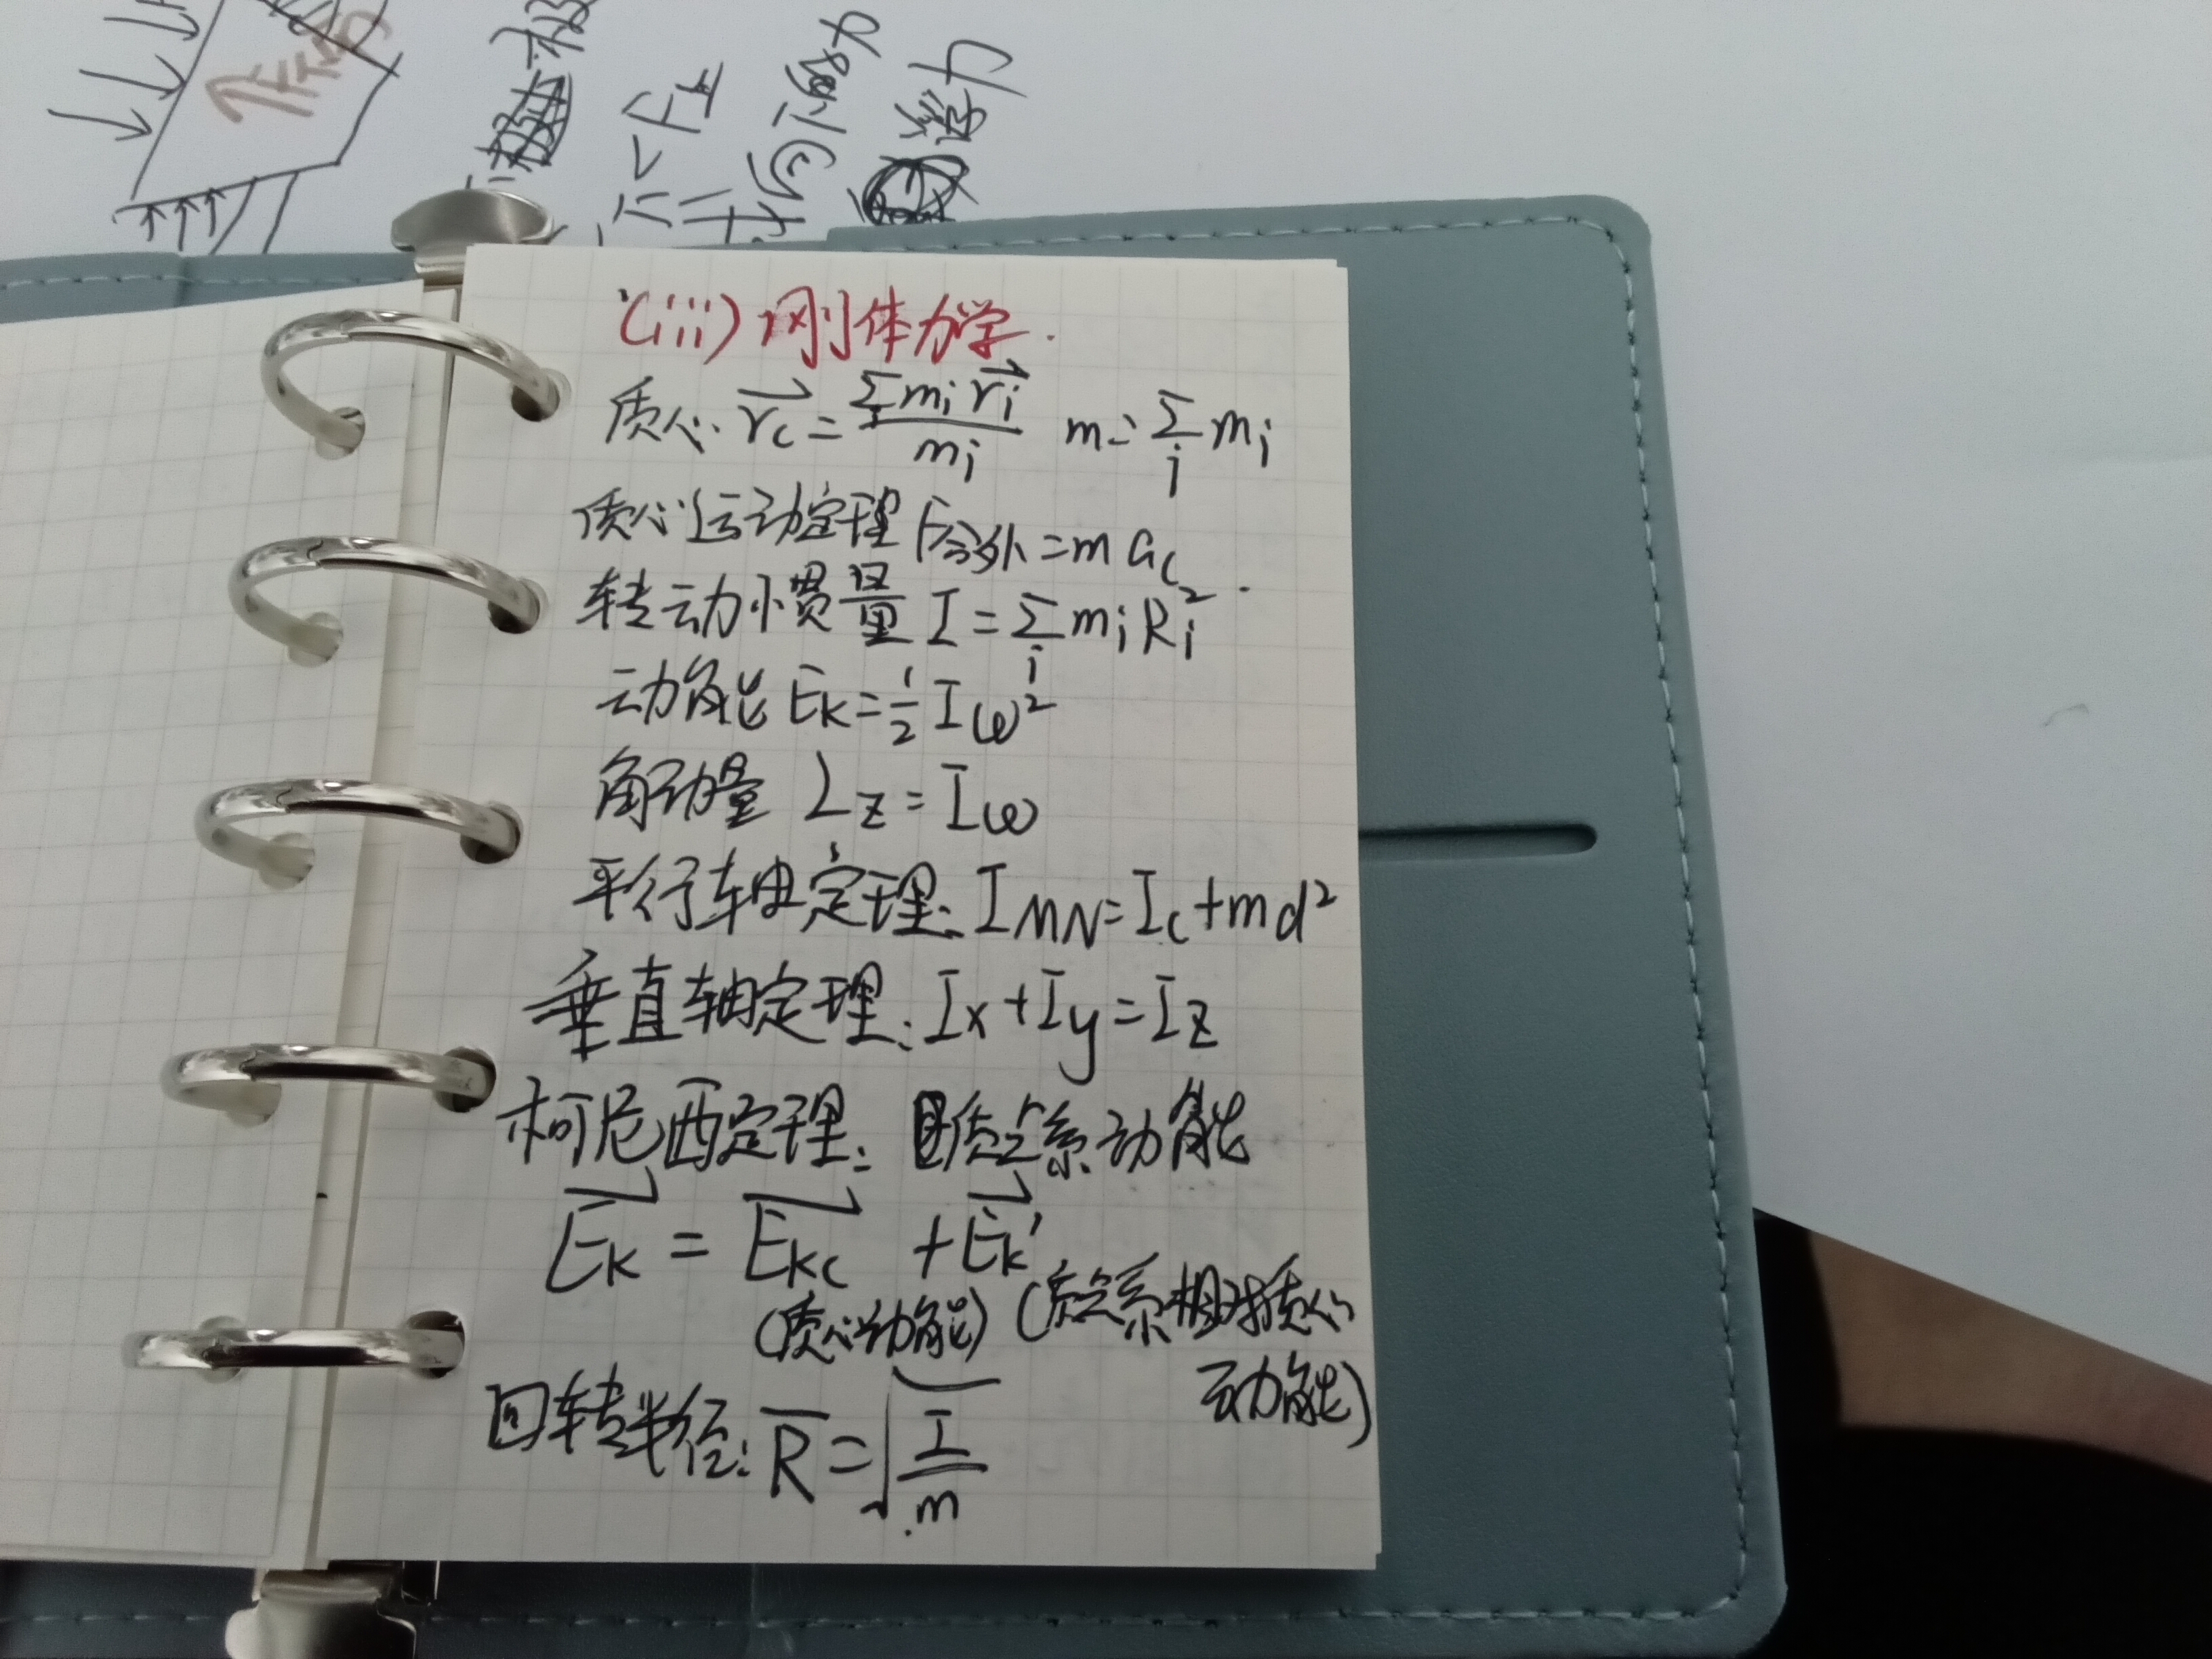 (iii) 刚体力学.
质心 r⃗c = Σmi r⃗i / mi  m = Σi mi
质心运动定理 F合外 = m ac
转动惯量 I = Σi mi Ri²
动能 Ek = 1/2 Iω²
角动量 Lz = Iω
平行轴定理: IMN = Ic + md²
垂直轴定理: Ix + Iy = Iz
柯尼西定理: 质点系动能
E⃗k = E⃗kc + E⃗k'
(质心动能) (质点系相对质心
动能)
回转半径: R̄ = √(I/m)